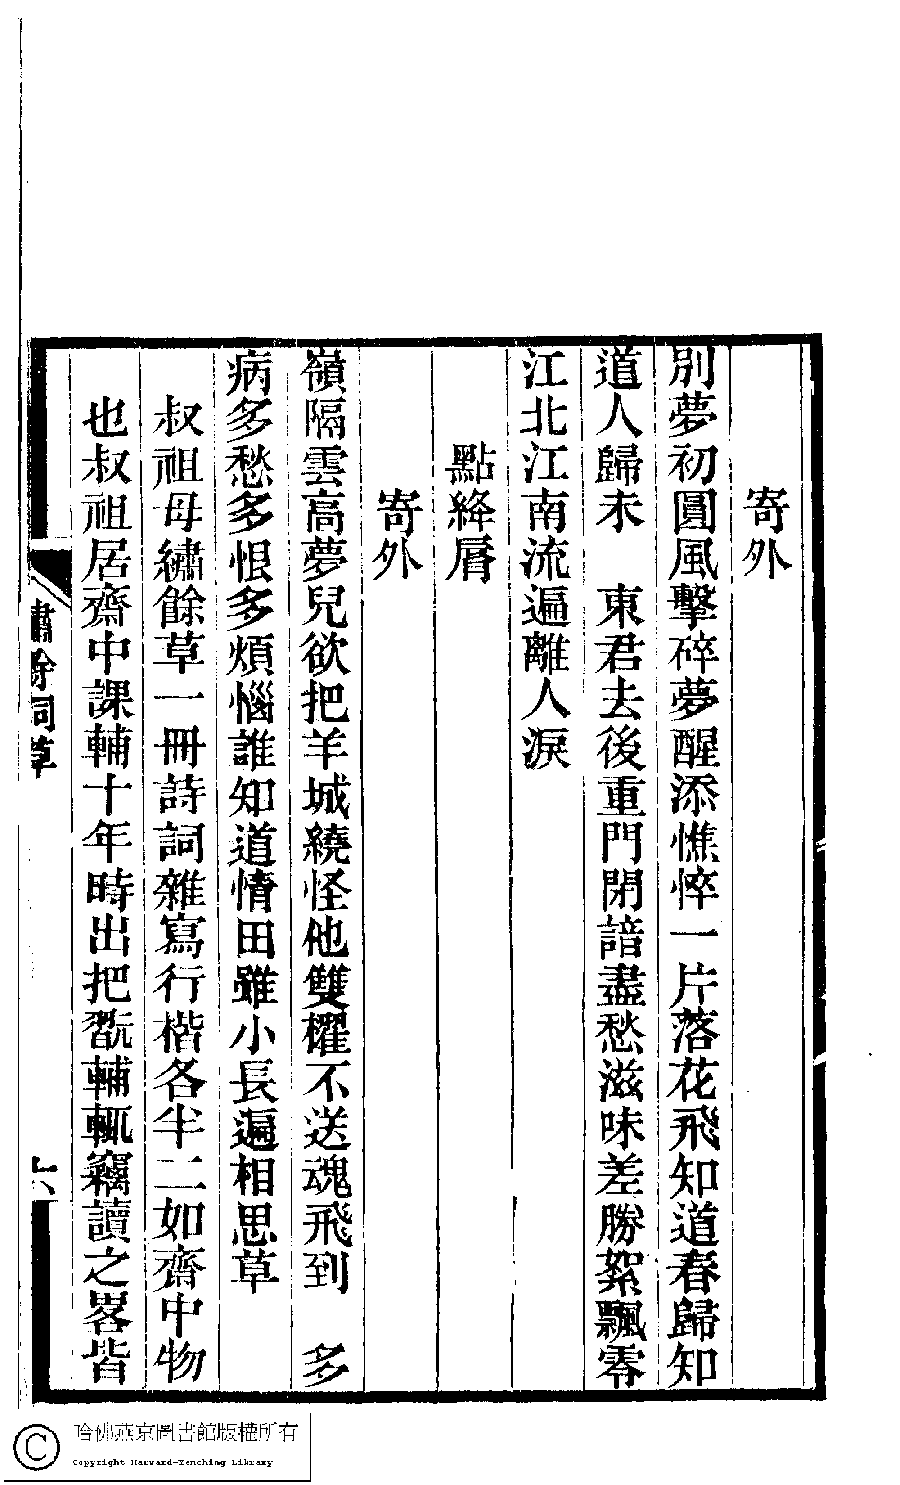 寄外
別夢初圓風擊碎夢醒添憔悴一片落花飛知道春歸知
道人歸未　東君去後重門閉諳盡愁滋味差勝絮飄零
江北江南流遍離人淚
點絳脣
寄外
嶺隔雲高夢兒欲把羊城繞怪他雙櫂不送魂飛到　多
病多愁多恨多煩惱誰知道情田雖小長遍相思草
叔祖母繡餘草一冊詩詞雜寫行楷各半二如齋中物
也叔祖居齋中課輔十年時出把翫輔輒竊讀之畧皆
繡餘詞草
十六
哈佛燕京圖書館版權所有
Copyright Harvard-Yenching Library